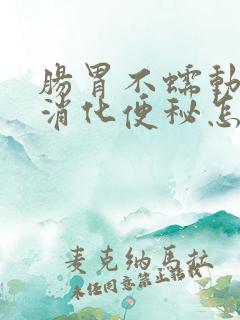 腸胃不蠕動
消化便秘怎
麦克纳马拉
未任同意禁止转载